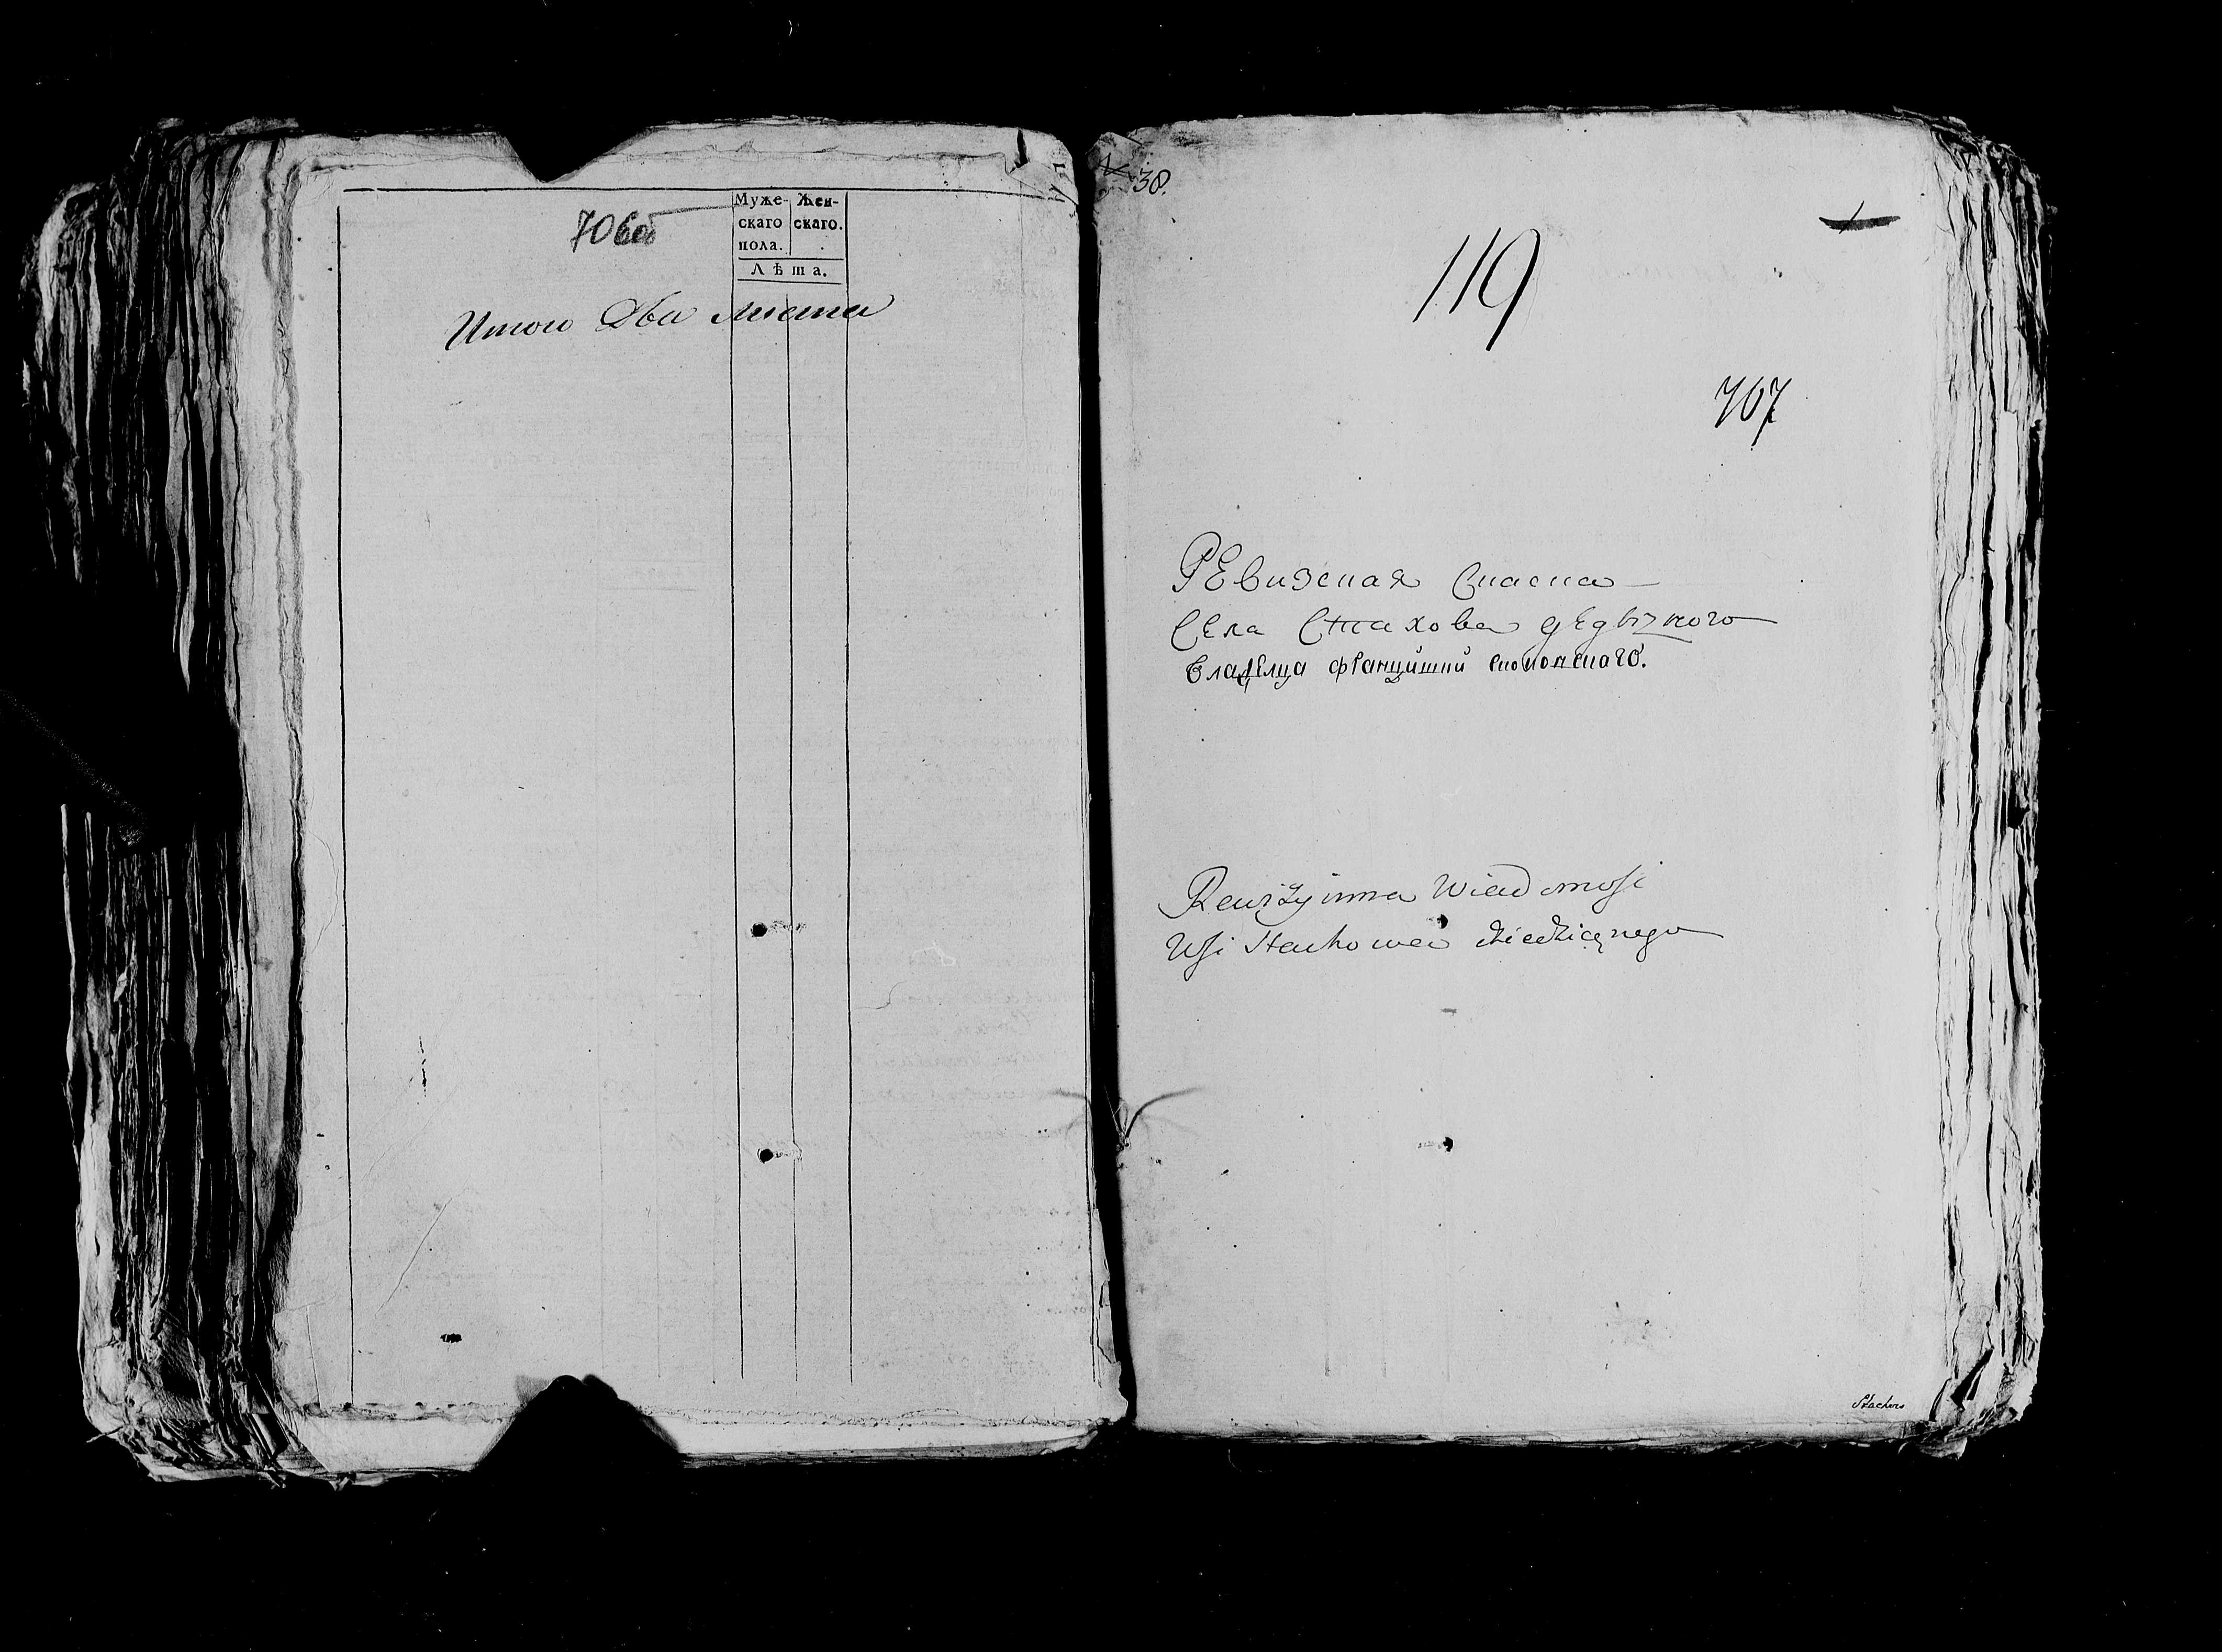 706об
Муже- Жен-
скаго скаго.
пола.
Лѣта.
Итого два листа
38.
1
119
707
РЕвизская Скаска
СЕла Стахова дЕдызного
владЕлца францишки
Rewizyinna Wiadomość
Wsi Stachowa dziedzicznego
Stachow